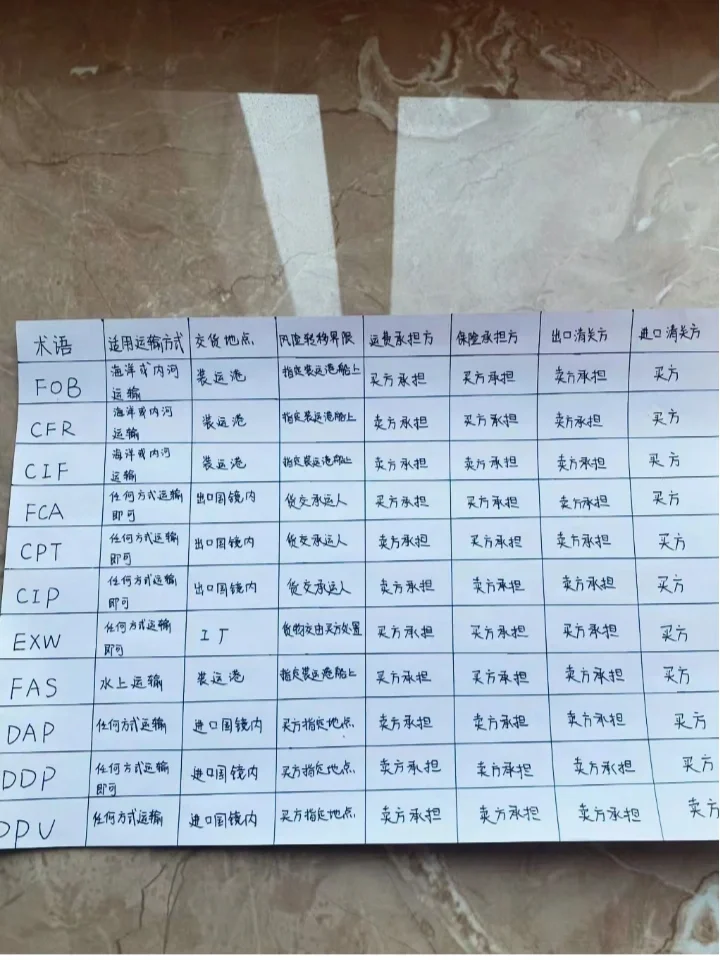 术语 适用运输方式 交货地点 风险转移界限 运费承担方 保险承担方 出口清关方 进口清关方
FOB 海洋或内河运输 装运港 指定装运港船上 买方承担 买方承担 卖方承担 买方
CFR 海洋或内河运输 装运港 指定装运港船上 卖方承担 买方承担 卖方承担 买方
CIF 海洋或内河运输 装运港 指定装运港船上 卖方承担 卖方承担 卖方承担 买方
FCA 任何方式运输即可 出口国镜内 货交承运人 买方承担 买方承担 卖方承担 买方
CPT 任何方式运输即可 出口国镜内 货交承运人 卖方承担 买方承担 卖方承担 买方
CIP 任何方式运输即可 出口国镜内 货交承运人 卖方承担 卖方承担 卖方承担 买方
EXW 任何方式运输即可 工厂 货物交由买方处置 买方承担 买方承担 买方承担 买方
FAS 水上运输 装运港 指定装运港船上 买方承担 买方承担 卖方承担 买方
DAP 任何方式运输 进口国镜内 买方指定地点 卖方承担 卖方承担 卖方承担 买方
DDP 任何方式运输即可 进口国镜内 买方指定地点 卖方承担 卖方承担 卖方承担 买方
DPU 任何方式运输 进口国镜内 买方指定地点 卖方承担 卖方承担 卖方承担 卖方